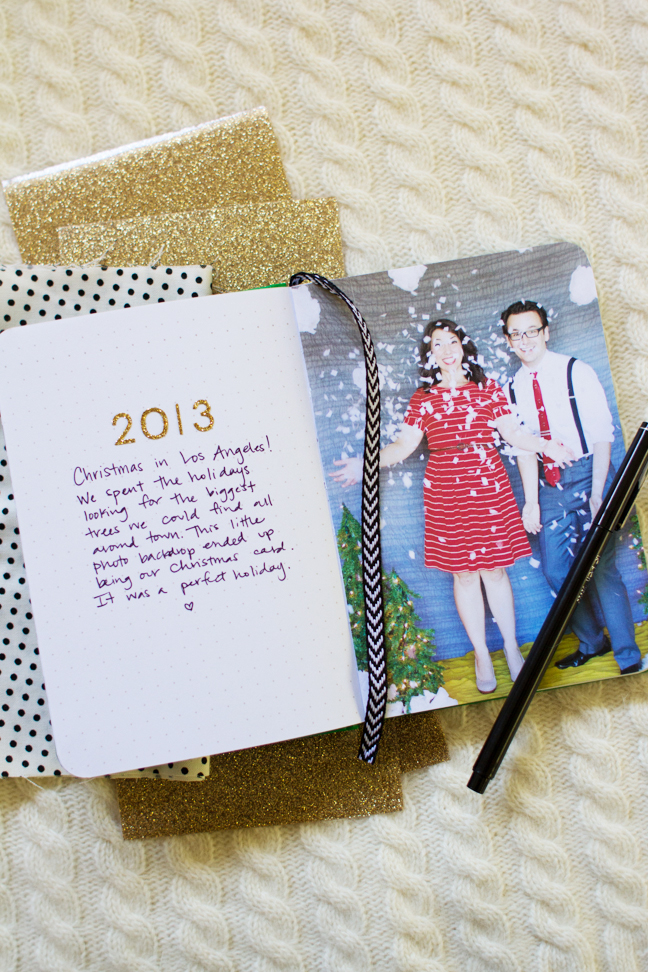 2013
Christmas in Los Angeles!
We spent the holidays
looking for the biggest
trees we could find all
around town. This little
photo backdrop ended up
being our Christmas card.
It was a perfect holiday.